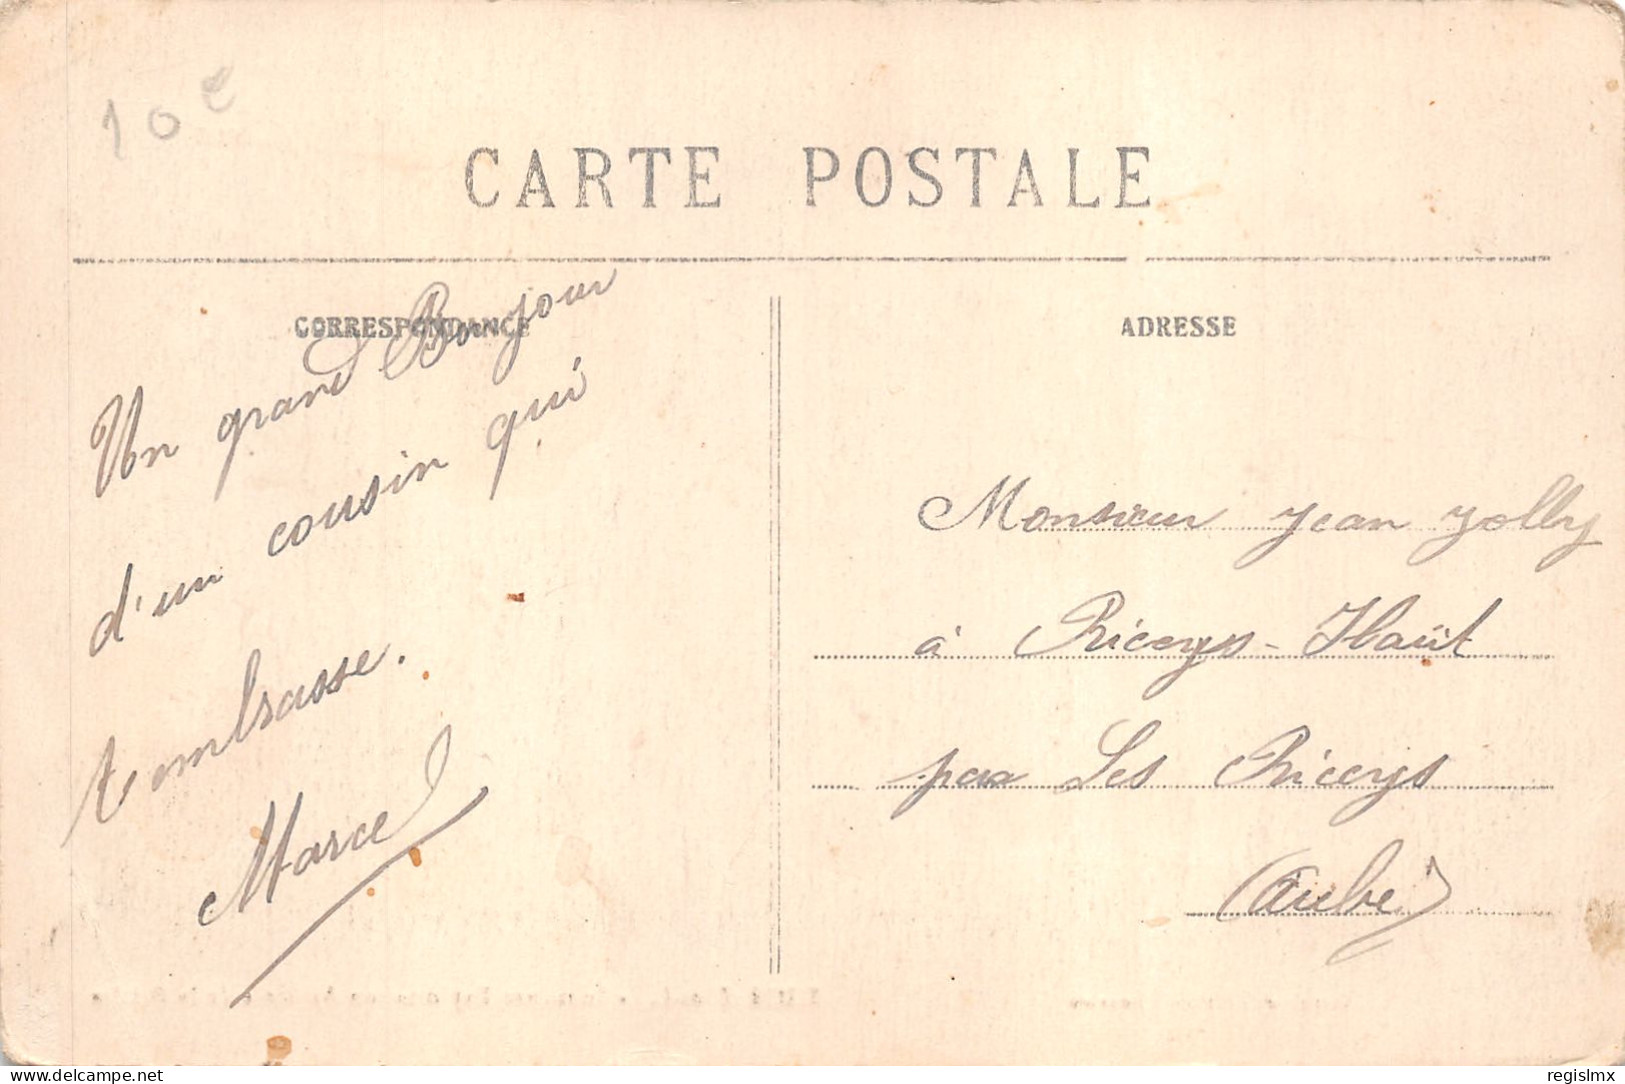 10 €
CARTE POSTALE
CORRESPONDANCE
ADRESSE
Un grand Bonjour
d'un cousin qui
t'embrasse.
Marcel
Monsieur Jean Jolly
à Riceys-Haut
par Les Riceys
(Aube)
www.delcampe.net
regislmx